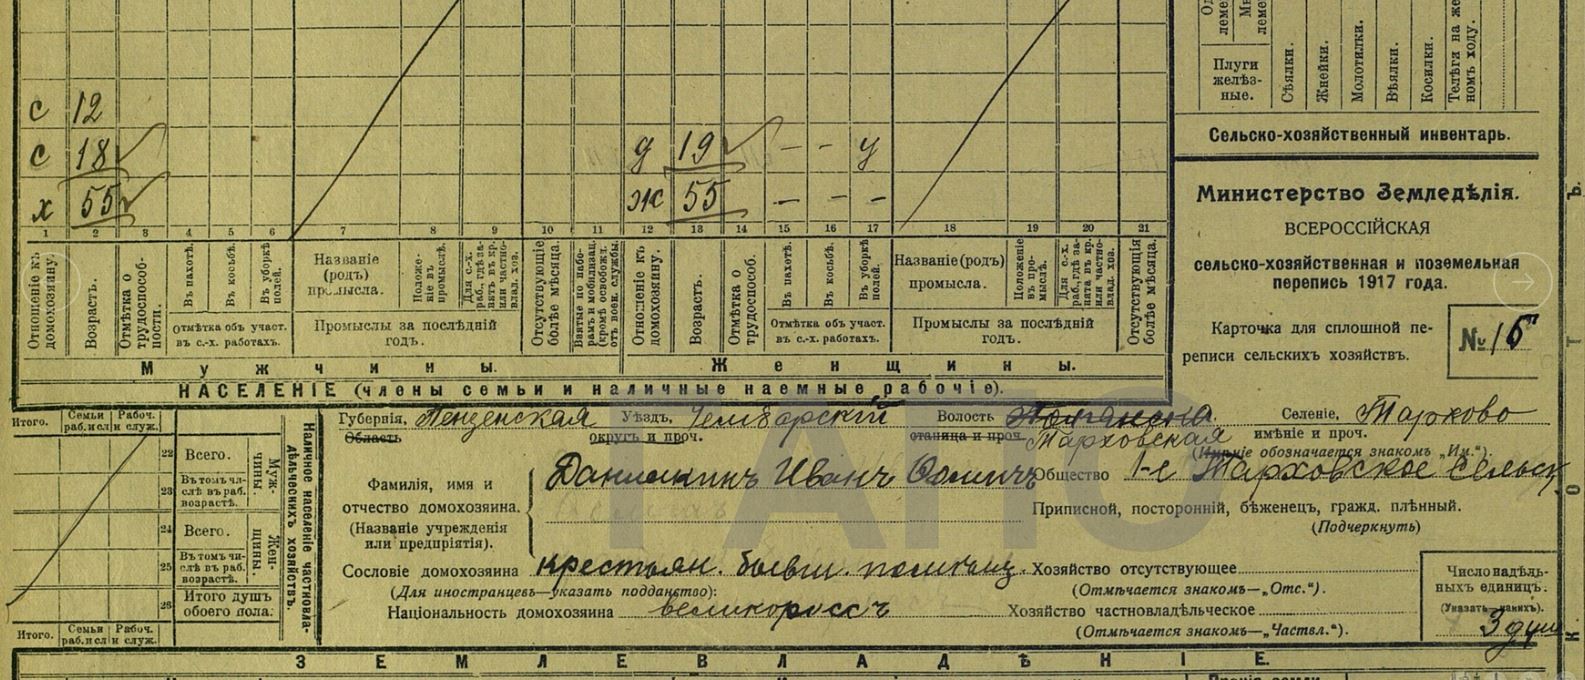 Плуги желѣз-ные.
Сѣялки.
Жнейки.
Молотилки.
Вѣялки.
Косилки.
Телѣга на же
номъ ходу.
Сельско-хозяйственный инвентарь.
с 12
с 18
х 55
д 19 – – у
ж 55 – – –
1 2 3 4 5 6 7 8 9 10 11 12 13 14 15 16 17 18 19 20 21
Отношеніе къ домохозяину.
Возрастъ.
Отмѣтка о трудоспособ-ности.
Въ пахотѣ.
Въ косьбѣ.
Въ уборкѣ полей.
Отмѣтка объ участ. въ с.-х. работахъ.
Названіе (родъ) промысла.
Положе-ніе въ промыслѣ.
Для с.-х. раб., гдѣ за-нятъ въ кр. или частно-влад. хоз.
Промыслы за послѣдній годъ.
Отсутствующіе болѣе мѣсяца.
Взятые по набо-рамъ и мобилизац. (кромѣ освобожд. отъ воен. службы).
Отношеніе къ домохозяину.
Возрастъ.
Отмѣтка о трудоспособ.
Въ пахотѣ.
Въ косьбѣ.
Въ уборкѣ полей.
Отмѣтка объ участ. въ с.-х. работахъ.
Названіе (родъ) промысла.
Положеніе въ про-мыслѣ.
Для с.-х. раб., гдѣ за-нята въ кр. или частно-влад. хоз.
Промыслы за послѣдній годъ.
Отсутствующія болѣе мѣсяца.
Мужчины. Женщины.
НАСЕЛЕНІЕ (члены семьи и наличные наемные рабочіе).
Министерство Земледѣлія.
ВСЕРОССІЙСКАЯ
сельско-хозяйственная и поземельная
перепись 1917 года.
Карточка для сплошной пе-
реписи сельскихъ хозяйствъ.
№
Итого. Семьи раб. и сл. Рабоч. и служ.
22 Всего.
23 Въ томъ чи-слѣ въ раб. возрастѣ.
Муж-чины.
24 Всего.
25 Въ томъ чи-слѣ въ раб. возрастѣ.
Жен-щины.
26 Итого душъ обоего пола.
Наличное населеніе частновла-дѣльческихъ хозяйствъ.
Итого. Семьи раб. и сл. Рабоч. и служ.
Губернія, Пензенская Уѣздъ, Чембарскій Волость Селеніе, Тархово
Область округъ и проч. станица и проч. Тарховская имѣніе и проч.
(Имѣніе обозначается знакомъ „Им.“).
Фамилія, имя и
отчество домохозяина.
(Названіе учрежденія
или предпріятія).
Иванъ
Общество 1-е Тарховское Сельск
Приписной, посторонній, бѣженецъ, гражд. плѣнный.
(Подчеркнуть)
Сословіе домохозяина крестьян. бывш. помѣщ. Хозяйство отсутствующее
(Для иностранцевъ—указать подданство): (Отмѣчается знакомъ—„Отс.“).
Національность домохозяина великороссъ Хозяйство частновладѣльческое
(Отмѣчается знакомъ—„Частвл.“).
Число надѣль-
ныхъ единицъ.
(Указать какихъ).
3 душ
ЗЕМЛЕВЛАДѢНІЕ.
ГАПО